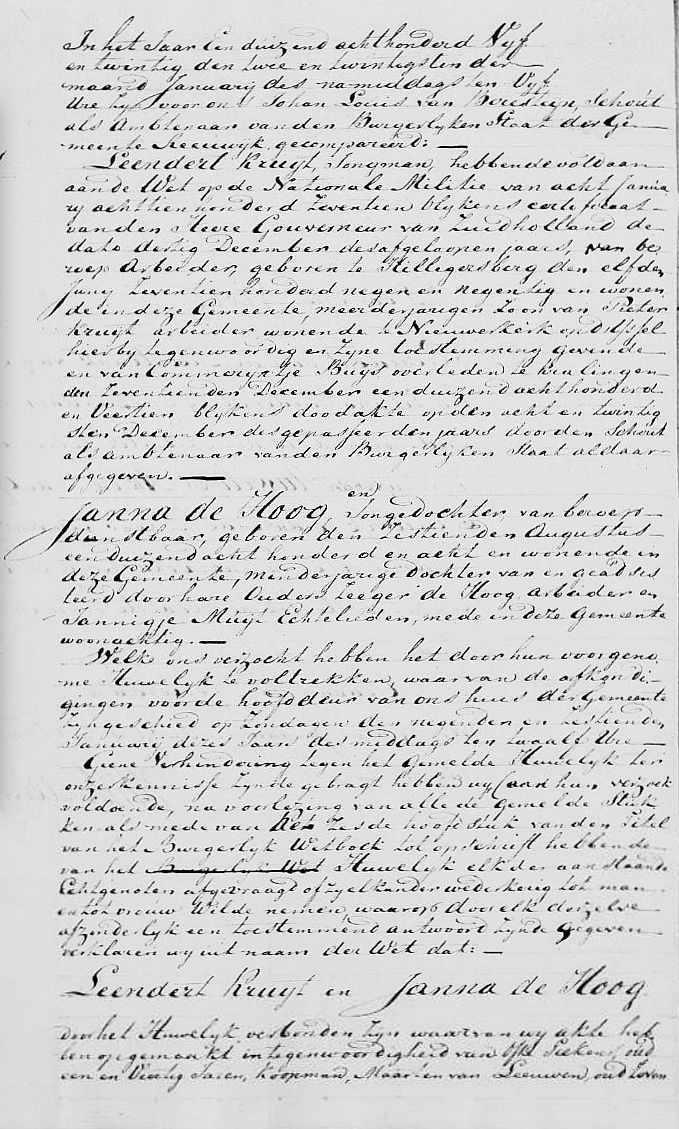 In het Jaar Een duizend achthonderd Vyf
en twintig den twee en twintigsten der
maand January des namiddags ten Vyf
Ure zyn voor ons Johan Louis van Beresteyn, Schout
als Ambtenaar van den Burgerlyken Staat der Ge-
meente Reeuwyk, gecompareerd: —
Leendert Kruyt, Jongman, hebbende voldaan
aan de Wet op de Nationale Militie van acht Janua
ry achttien honderd Zeventien blykens certificaat
van den Heere Gouverneur van Zuidholland de
dato dertig December des afgeloopen jaars, van be
roep Arbeider, geboren te Hillegersberg den elfden
Juny Zeventien honderd negen en negentig en wonen
de in deze Gemeente, meerderjarigen Zoon van Pieter
Kruyt arbeider wonende te Nieuwerkerk op d'Yssel
hierby tegenwoordig en zyne toestemming gevende
en van Commertje Buys overleden te Kralingen
den Zeventienden December een duizend achthonderd
en Veertien blykens doodakte op den acht en twintig
sten December des gepasseerden jaars door den Schout
als ambtenaar van den Burgerlyken Staat aldaar
afgegeven. —
en
Janna de Hoog, Jongedochter, van beroep
dienstbaar, geboren den Zestienden Augustus
een duizend acht honderd en acht en wonende in
deze Gemeente, minderjarige Dochter van en geadsis
teerd door hare Ouders Zeeger de Hoog, Arbeider en
Jannigje Muyt Echtelieden, mede in deze Gemeente
woonachtig. —
Welke ons verzocht hebben het door hun voorgeno
me Huwelyk te voltrekken, waar van de afkondi-
gingen voor de hoofddeur van ons huis der Gemeente
zyn geschied op Zondagen den negenden en Zestienden
January dezes Jaars des middags ten twaalf Ure
Geene Verhindering tegen het Gemelde Huwelyk ter
onzer kennisse zynde gebragt hebben wy (aan hun verzoek
voldoende, na voorlezing van alle de gemelde Stuk
ken als mede van het Zesde hoofdstuk van den Titel
van het Burgerlyk Wetboek tot opschrift hebbende
van het Burgerlyk Wet Huwelyk elk der aanstaande
Echtgenoten afgevraagt of zy elkander wederkerig tot man
en tot vrouw Wilde nemen, waarop door elk derzelve
afzinderlyk een toestemmend antwoord zynde gegeven
verklaren wy uit naam der Wet dat: —
Leendert Kruyt en Janna de Hoog
door het Huwelyk verbonden zyn waarvan wy akte heb
ben opgemaakt in tegenwoordigheid van oud
een en Veertig Jaren, Koopman, Maarten van Leeuwen, oud Zeven